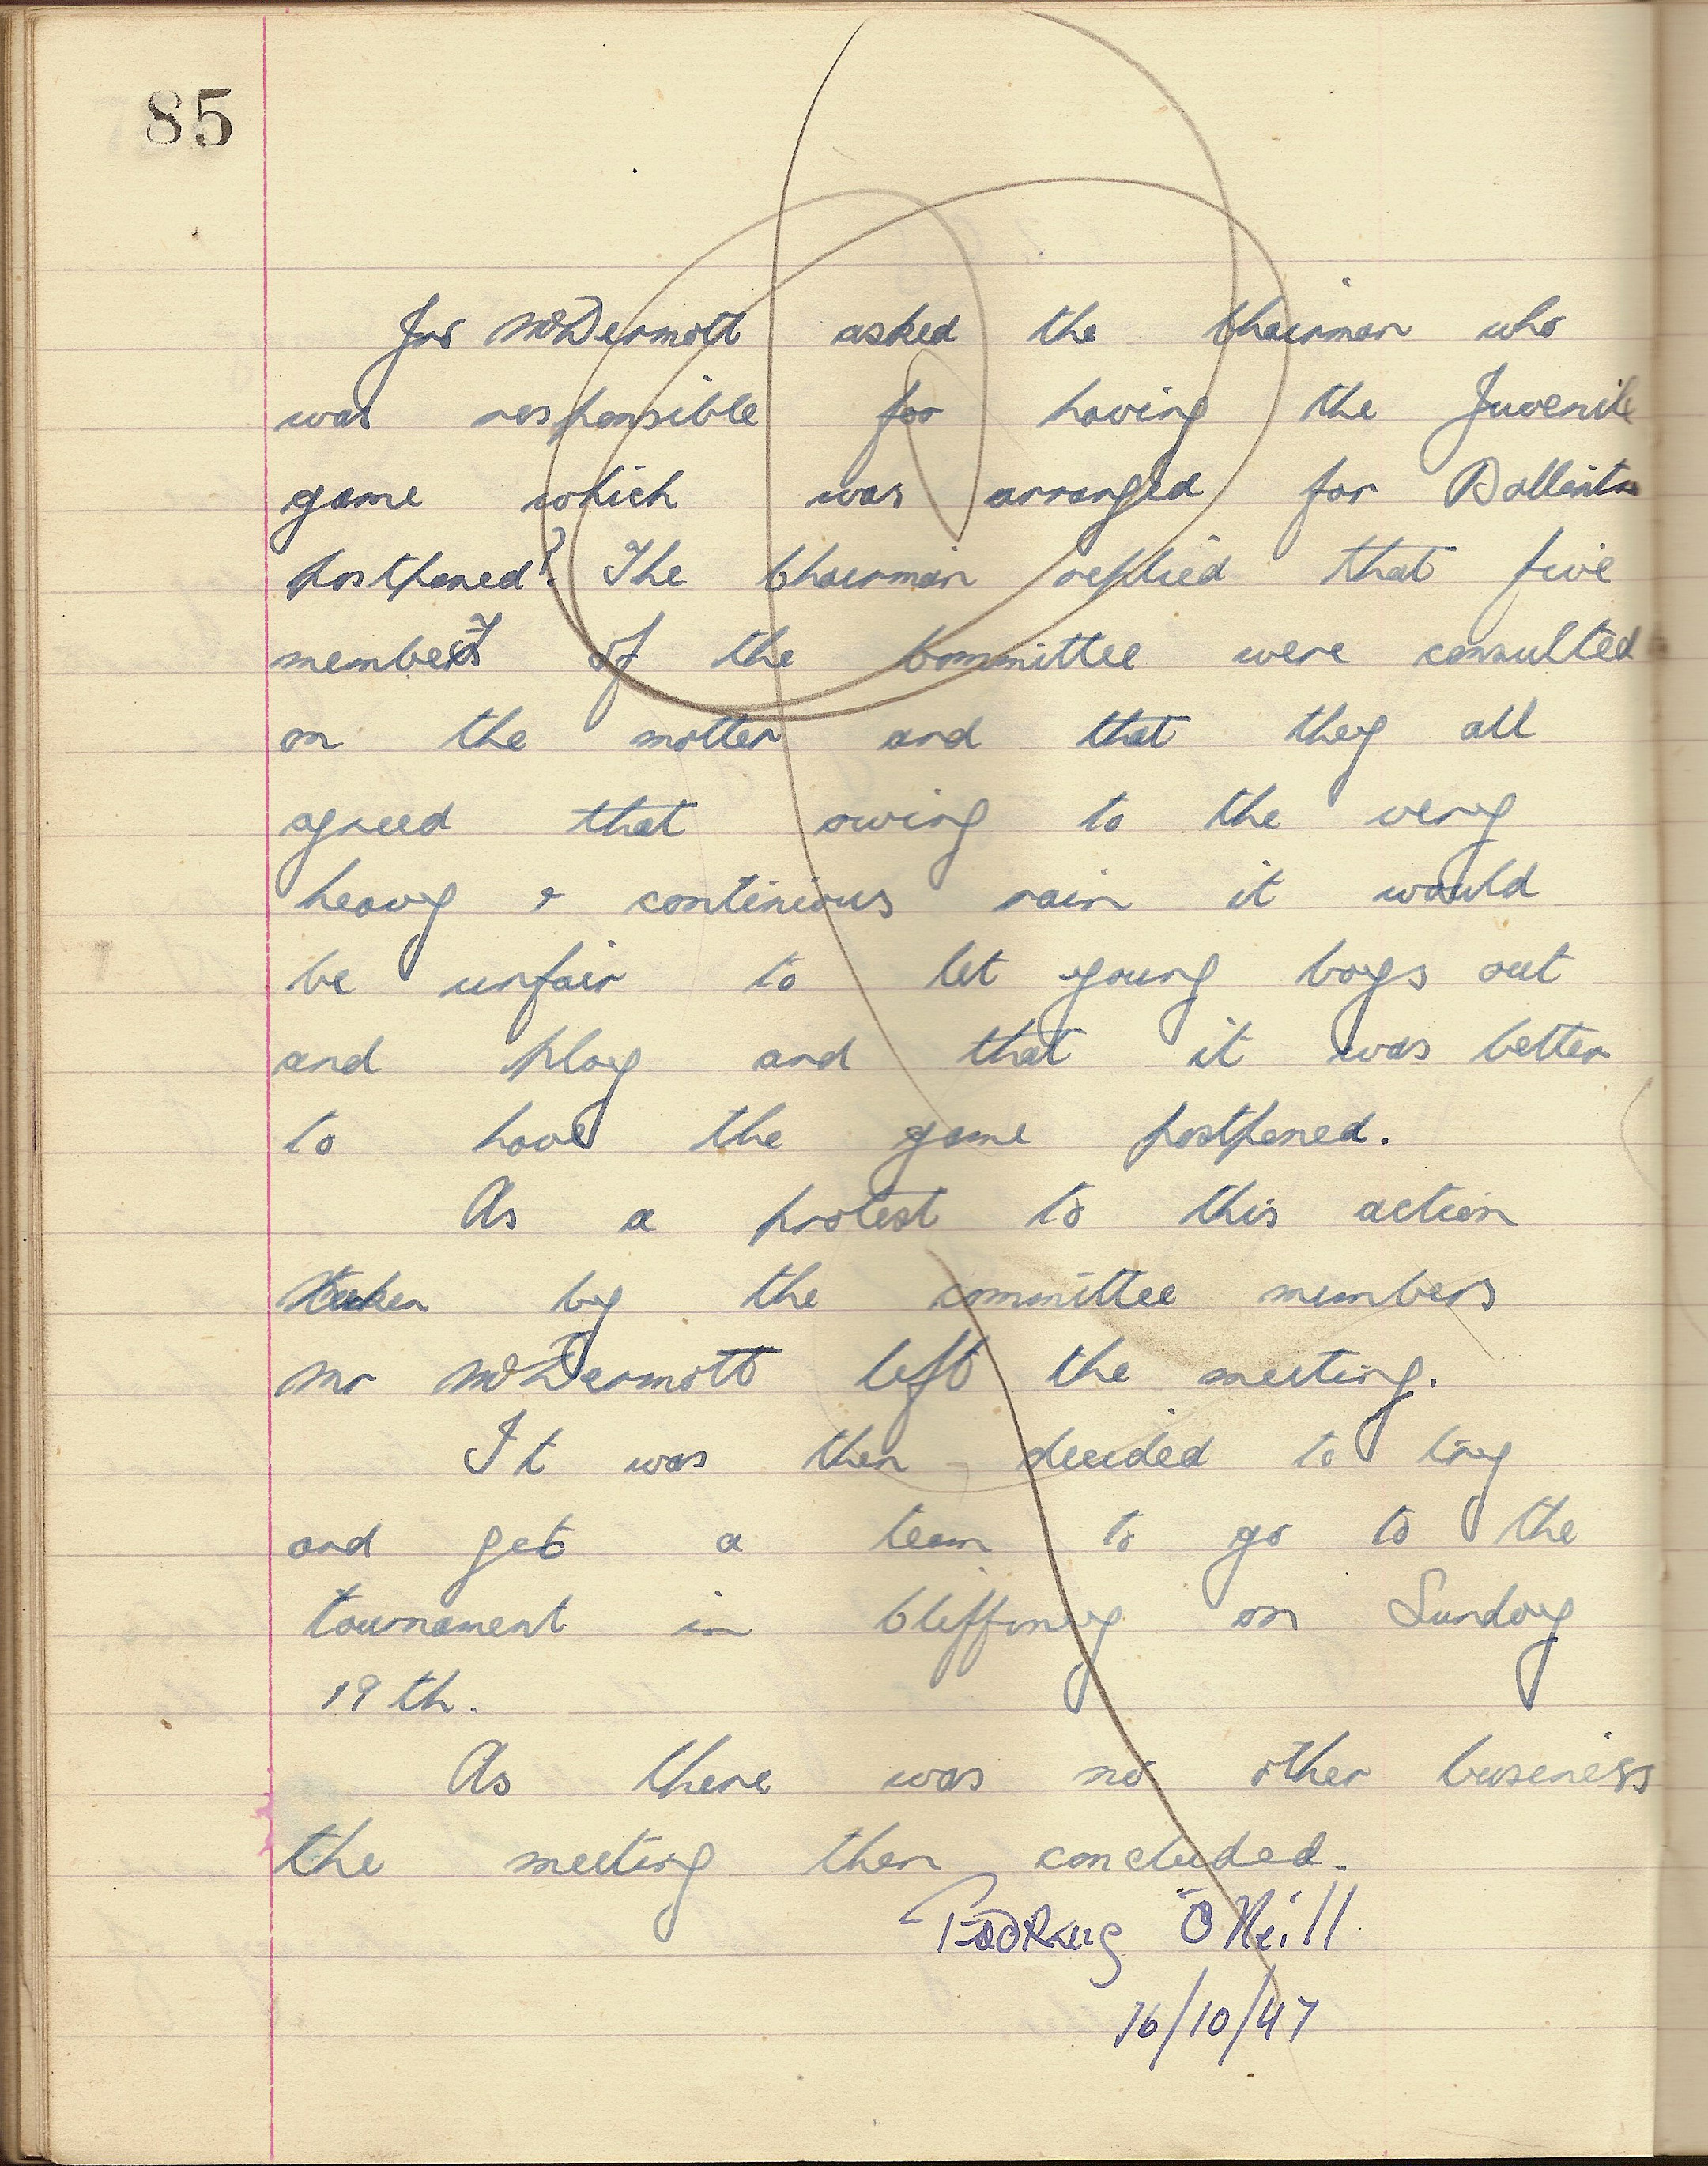 85
Jas McDermott asked the Chairman who
was responsible for having the Juvenile
game which was arranged for
postponed? The Chairman replied that five
members of the Committee were consulted
on the matter and that they all
agreed that owing to the very
heavy & continious rain it would
be unfair to let young boys out
and play and that it was better
to have the game postponed.
As a protest to this action
taken by the committee members
Mr McDermott left the meeting.
It was then decided to try
and get a team to go to the
tournament in Cliffoney on Sunday
19th.
As there was no other buseniss
the meeting then concluded.
Pádraug O'Neill
16/10/47